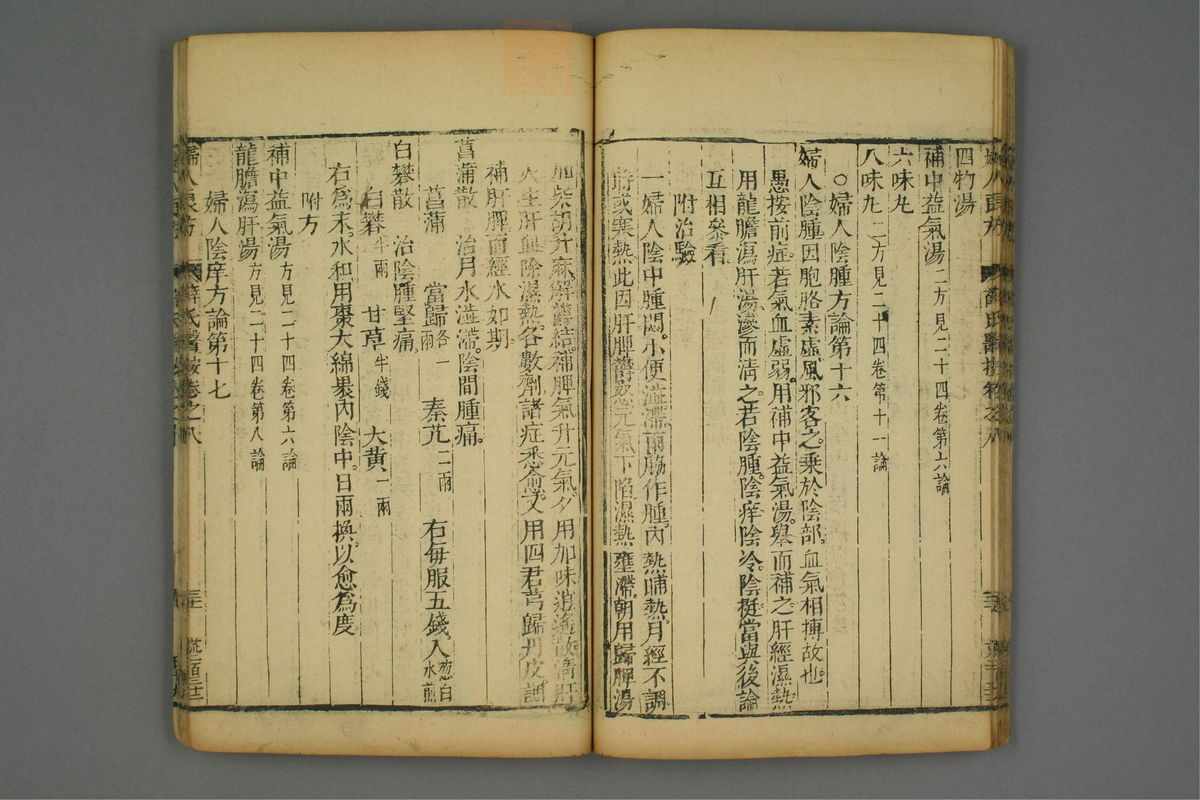 四物湯
補中益氣湯二方見二十四卷第六論
六味丸
八味丸二方見二十四卷第十一論
○婦人陰腫方論第十六
婦人陰腫因胞胳素虛風邪客之乘於陰部血氣相搏故也
愚按前症若氣血虛弱用補中益氣湯舉而補之肝經濕熱
用龍膽瀉肝湯滲而清之若陰腫陰痒陰冷陰挺當與後論
互相參看
附治驗
一婦人陰中腫悶小便澁滯兩脇作腫內熱晡熱月經不調
時或寒熱此因肝脾鬱怒元氣下陷濕熱壅滯朝用歸脾湯
加柴胡升麻解鬱結補脾氣升元氣夕用加味逍遙散清肝
火生肝血除濕熱各數劑諸症悉愈又用四君芎歸丹皮調
補肝脾而經水如期
菖蒲散 治月水澁滯陰間腫痛
菖蒲 當歸各一兩 秦艽二兩 右每服五錢入葱白水煎
白礬散 治陰腫堅痛
白礬半兩 甘草半錢 大黄一兩
右爲末水和用棗大綿褁內陰中日兩換以愈爲度
附方
補中益氣湯方見二十四卷第六論
龍膽瀉肝湯方見二十四卷第八論
婦人陰痒方論第十七
婦人良方 薛氏醫按卷之八